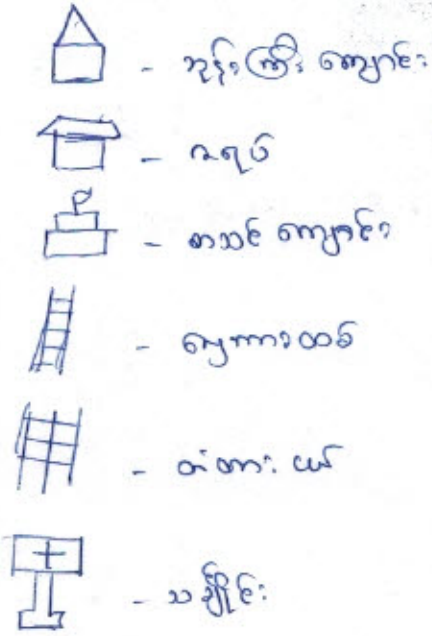 - ဘုန်းကြီး ကျောင်း
- ဇရပ်
- စာသင် ကျောင်း
- လှေကားထစ်
- တံတား ငယ်
- သချိုင်း